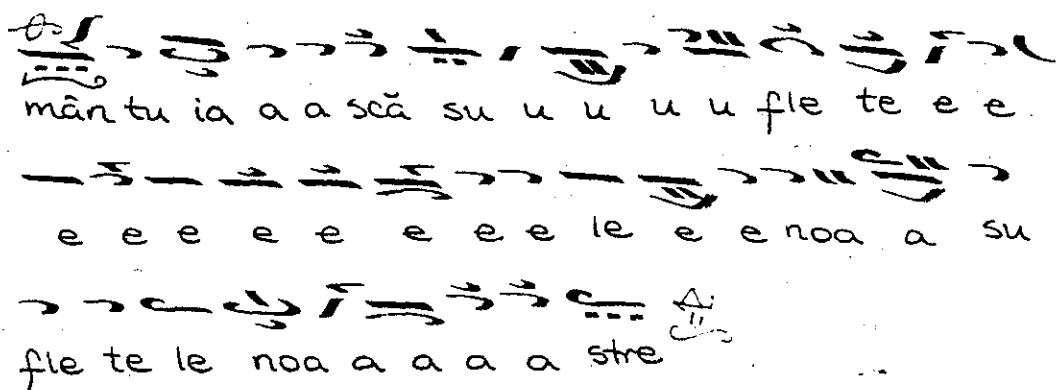 mân tu ia a a scă su u u u u fle te e e
e e e e e e e e le e e noa a su
fle te le noa a a a a stre